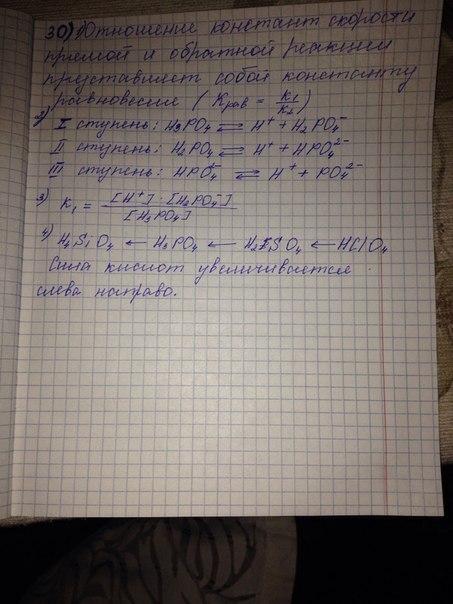 30) Отношение констант скорости
прямой и обратной реакции
представляет собой константу
равновесия (Kрав = k₁/k₂)
2)
I ступень: H₃PO₄ ⇌ H⁺ + H₂PO₄⁻
II ступень: H₂PO₄ ⇌ H⁺ + HPO₄²⁻
III ступень: HPO₄⁻ ⇌ H⁺ + PO₄²⁻
3) K₁ = [H⁺] · [H₂PO₄⁻] / [H₃PO₄]
4) H₄SiO₄ ← H₃PO₄ ← H₂SO₄ ← HClO₄
Сила кислот увеличивается
слева направо.